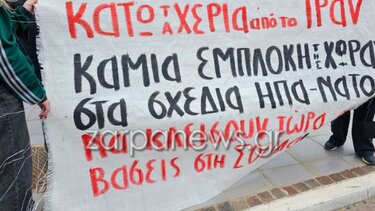 ΚΑΤΩ ΤΑ ΧΕΡΙΑ από το ΙΡΑΝ
ΚΑΜΙΑ ΕΜΠΛΟΚΗ της ΧΩΡΑ
στα ΣΧΕΔΙΑ ΗΠΑ-ΝΑΤΟ
zarpanews.gr
ΝΑ ΚΛΕΙΣΟΥΝ ΤΩΡΑ
ΒΑΣΕΙΣ στη